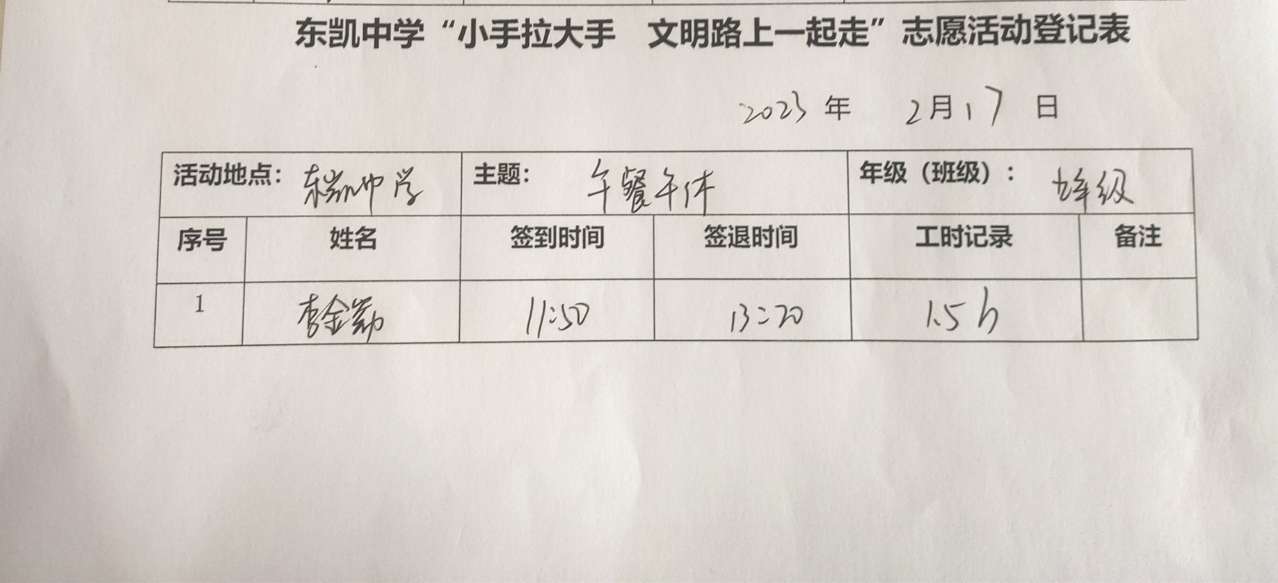 东凯中学“小手拉大手 文明路上一起走”志愿活动登记表
2023 年 2月17日
活动地点：东凯中学 主题：午餐午休 年级（班级）：七年级
序号 姓名 签到时间 签退时间 工时记录 备注
1 李金勤 11:50 13:20 1.5h